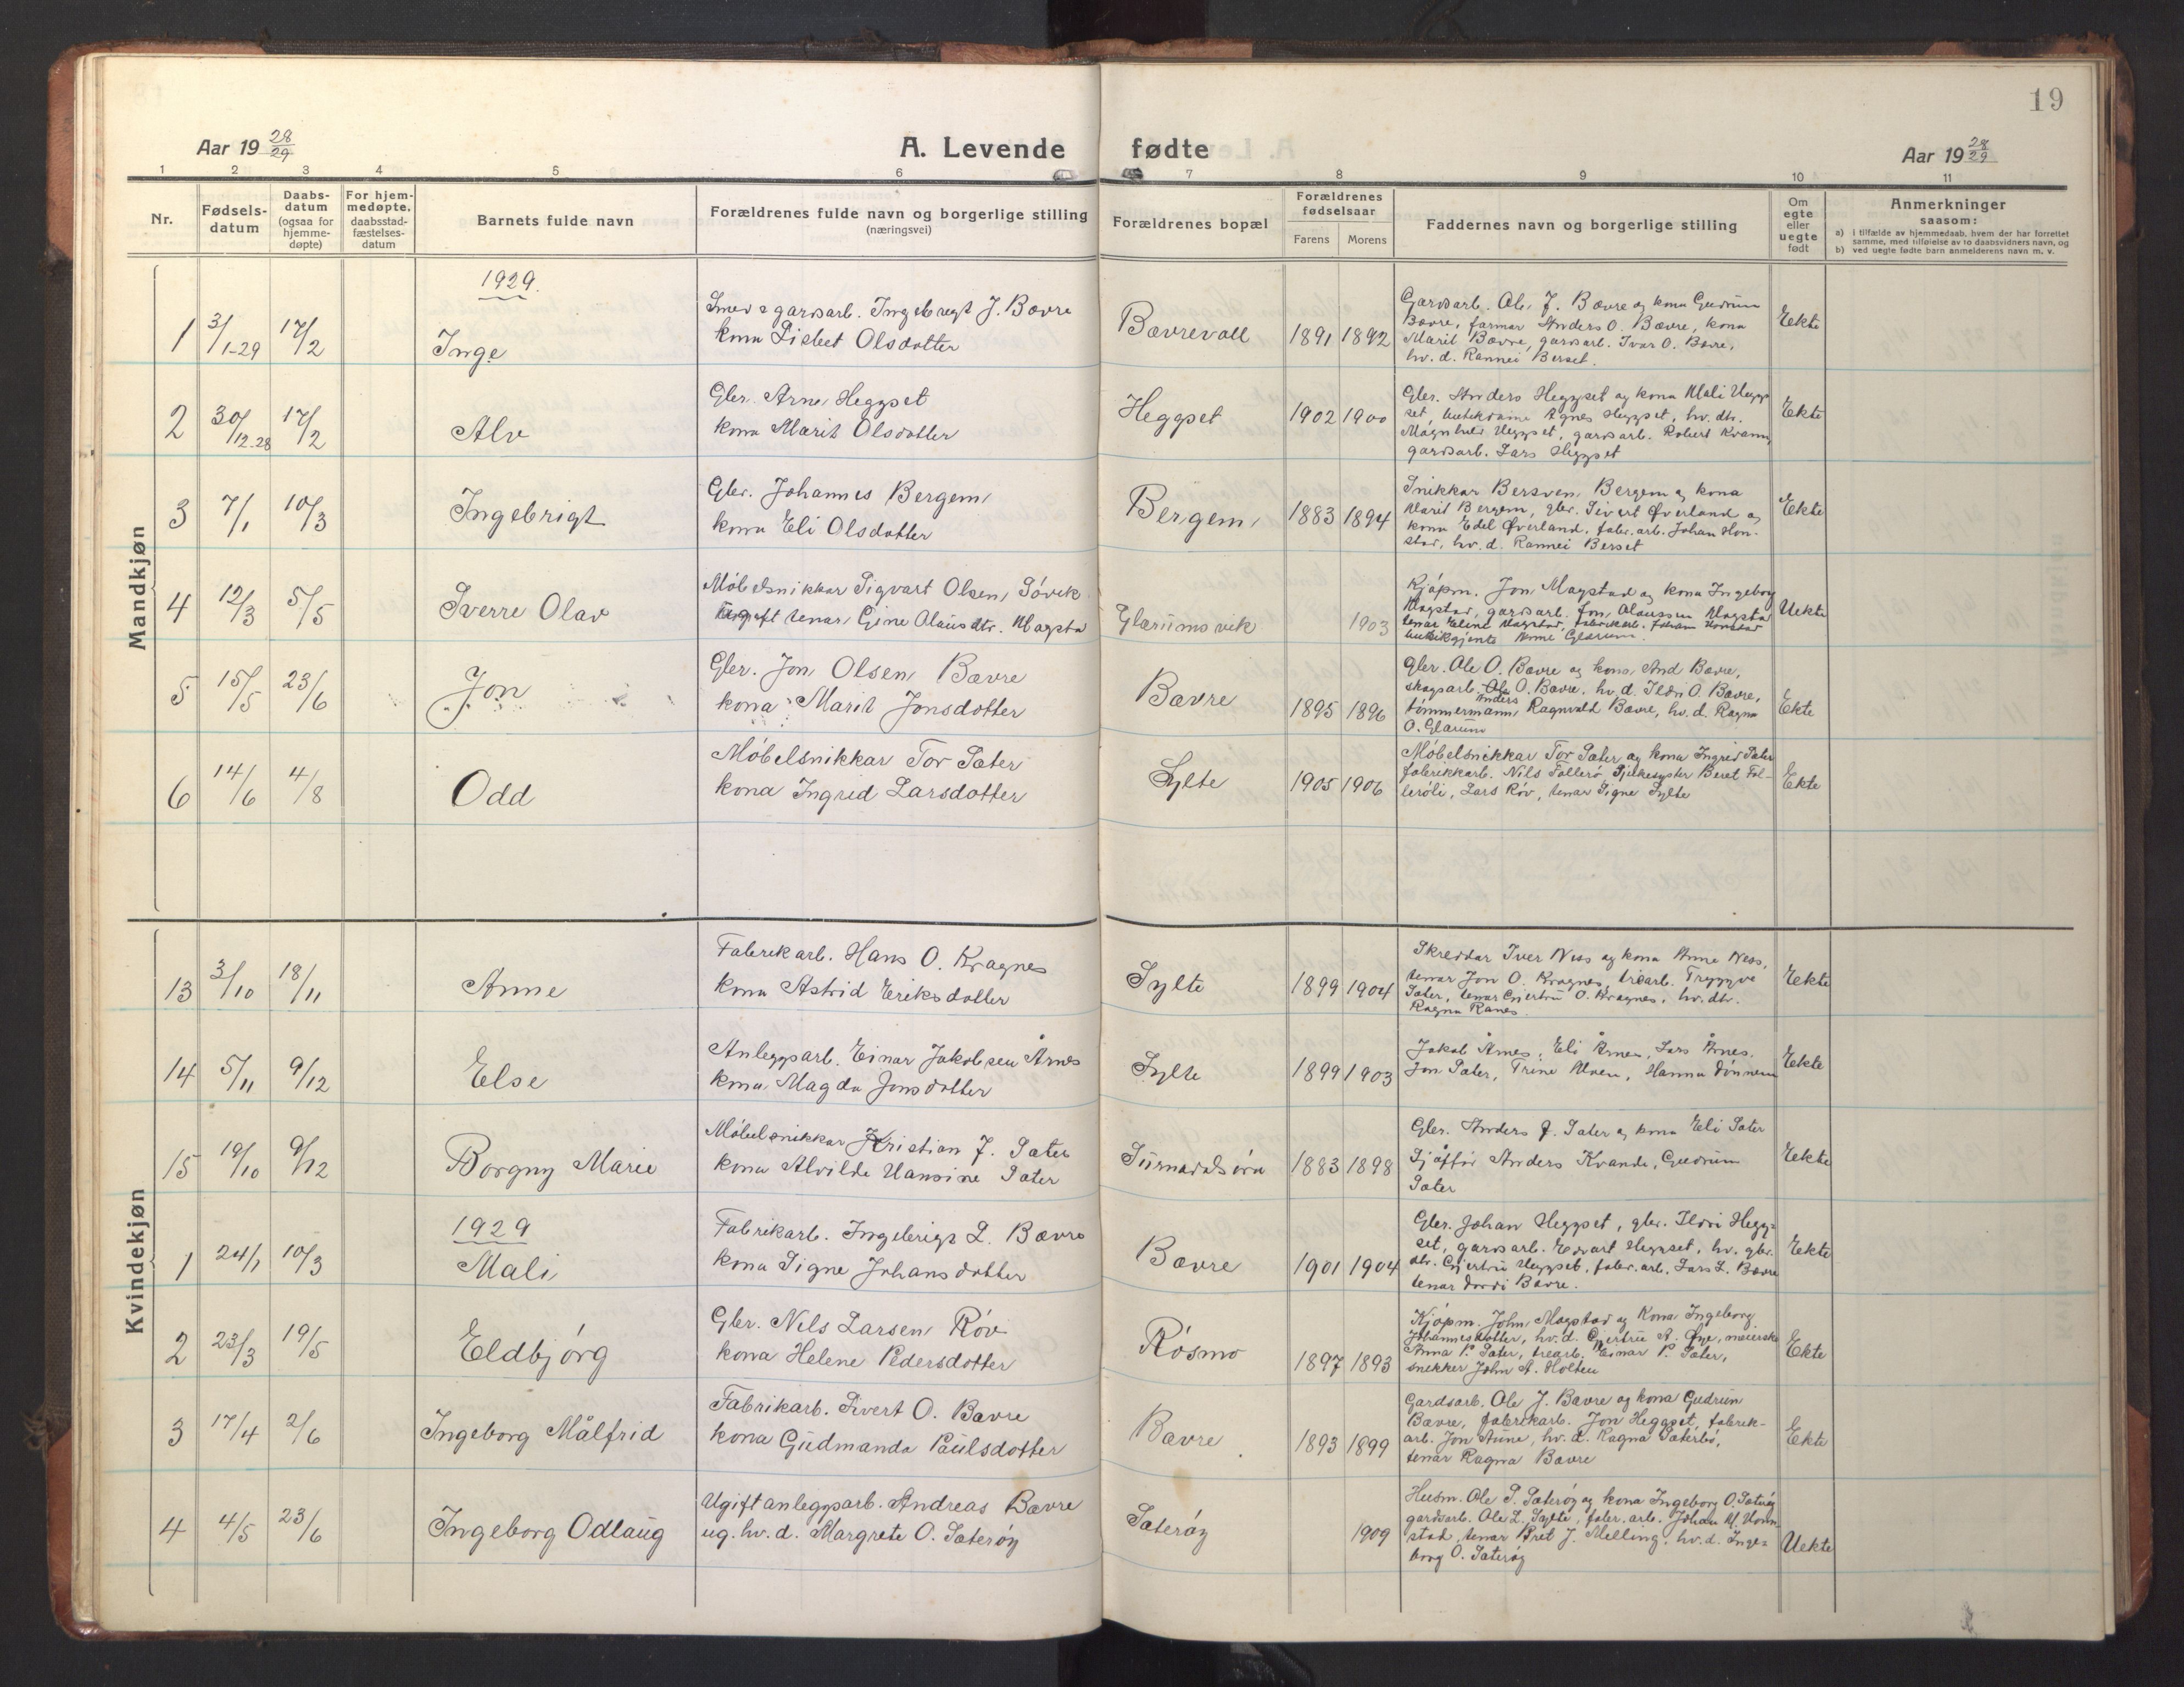 19
Aar 19 28/29
A. Levende fødte
Aar 19 28/29
1 2 3 4 5 6 7 8 9 10 11
Nr.
Fødsels-
datum
Daabs-
datum
(ogsaa for
hjemme-
døpte)
For hjem-
medøpte.
daabsstad-
fæstelses-
datum
Barnets fulde navn
Forældrenes fulde navn og borgerlige stilling
(næringsvei)
Forældrenes bopæl
Forældrenes
fødselsaar
Farens Morens
Faddernes navn og borgerlige stilling
Om
egte
eller
uegte
født
Anmerkninger
saasom:
a) i tilfælde av hjemmedaab, hvem der har forrettet
samme, med tilføielse av to daabsvidners navn, og
b) ved uegte fødte barn anmelderens navn m. v.
Mandkjøn
1929.
1 3/1-29 17/2 Inge
Smed & gardsarb. Ingebregt J. Bævre
kona Lisbet Olsdotter
Bævrevoll 1891 1892
Gardsarb. Ole J. Bævre og kona Gudrun
Bævre, farmar Anders O. Bævre, kona
Marit Bævre, gardsarb. Ivar O. Bævre,
hv. d. Rannei Berset.
Eekte
2 30/12-28 17/2 Alv
Gbr. Arne Heggset
kona Marit Olsdotter
Heggset 1902 1900
Gbr. Anders Heggset og kona Mali Hegg
set, Agnes Heggset, hv. dtr.
Magnhild Heggset, gardsarb. Robert Kvam,
gardsarb. Lars Heggset
Ekte
3 7/1 10/3 Ingebrigt
Gbr. Johannes Bergem
kona Eli Olsdotter
Bergem 1883 1894
Snikkar Bersven Bergem og kona
Marit Bergem, gbr. Sivert Øverland og
kona Edel Øverland, fabr. arb. Johan Hon-
stad, hv. d. Rannei Berset
Ekte
4 12/3 5/5 Sverre Olav
Møbelsnikkar Sigvart Olsen Søvik
Ugift tenar Gine Olausdtr. Magsta
Glærumsvik 1903
Kjøpm. Jon Magstad og kona Ingeborg
Magstad, gardsarb. Jon Olaussen Magstad
tenar Eline Magstad, fabrikkarb. Johan Honstad
butikgjente Anne Glærum.
Uekte
5 15/5 23/6 Jon
Gbr. Jon Olsen Bævre
kona Marit Jonsdotter
Bævre 1895 1896
Gbr. Ole O. Bævre og kona And Bævre,
skogsarb. Ole O. Bævre, hv. d. Ildri O. Bævre,
Anders
tømmermann Ragnvald Bævre, hv. d. Ragna
O. Glærum
Ekte
6 14/6 4/8 Odd
Møbelsnikkar Tor Sæter
kona Ingrid Larsdotter
Sylte 1905 1906
Møbelsnikkar Tor Sæter og kona Ingrid Sæter
fabrikkarb. Nils Tollerø, Sjukesyster Beret Fol-
lerøli, Lars Røv, tenar Signe Sylte
Ekte
Kvindekjøn
13 3/10 18/11 Anne
Fabrikarb. Hans O. Kragnes
kona Astrid Eriksdotter
Sylte 1899 1904
Skreddar Iver Ness og kona Anne Ness,
tenar Jon O. Kragnes, trearb. Tryggve
Sæter, tenar Gjertru O. Kragnes, hv. dtr.
Ragna Ranes
Eekte
14 5/11 9/12 Else
Anleggsarb. Einar Jakobsen Årnes
kona Magda Jonsdotter
Sylte 1899 1903
Jakob Årnes, Eli Årnes, Lars Årnes,
Jon Sæter, Trine Moen, Hanna Dønnem
Eekte
15 19/10 9/12 Borgny Marie
Møbelsnikkar Kristian J. Sæter
kona Alvilde Hansine Sæter
Surnadalsøra 1883 1898
Gbr. Anders J. Sæter og kona Eli Sæter
Sjåffør Anders Kvande, Gudrun
Sæter
Eekte
1929
1 24/1 10/3 Mali
Fabrikarb. Ingebrigt L. Bævre
kona Signe Johansdotter
Bævre 1901 1904
Gbr. Johan Heggset, gbr. Ildri Hegg-
set, gardsarb. Edvart Heggset, hv. gbr.
dtr. Gjertru Heggset, fabr. arb. Lars L. Bævre
tenar Dordi Bævre.
Eekte
2 23/3 19/5 Eldbjørg
Gbr. Nils Larsen Røv
kona Helene Pedersdotter
Røsmo 1897 1893
Kjøpm. John Magstad og Kona Ingeborg
Johannesdotter, hv. d. Gjertru A. Øye, meierske
Anna P. Sæter, trearb. Einar P. Sæter,
snekker John A. Holten
Ekte
3 17/4 2/6 Ingeborg Målfrid
Fabrikarb. Sivert O. Bævre
kona Gudmanda Paulsdotter
Bævre 1893 1899
Gardsarb. Ole J. Bævre og kona Gudrun
Bævre, fabrikarb. Jon Heggset, fabrik-
arb. Jon Aune, hv. d. Ragna Sæterbø,
tenar Ragna Bævre
Ekte
4 4/5 23/6 Ingeborg Odlaug
Ugift anleggsarb. Andreas Bævre
ug. hv. d. Margrete O. Sæterøy
Sæterøy 1909
Husm. Ole P. Sæterøy og kona Ingeborg O. Sæterøy
gardsarb. Ole L. Sylte, fabr. arb. Johan M. Honn-
stad, tenar Bret J. Melling, hv. d. Inge-
borg O. Sæterøy
Uekte